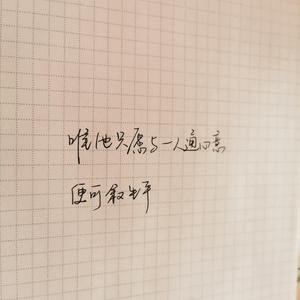 唯他只愿与一人通心意
便可叙生平